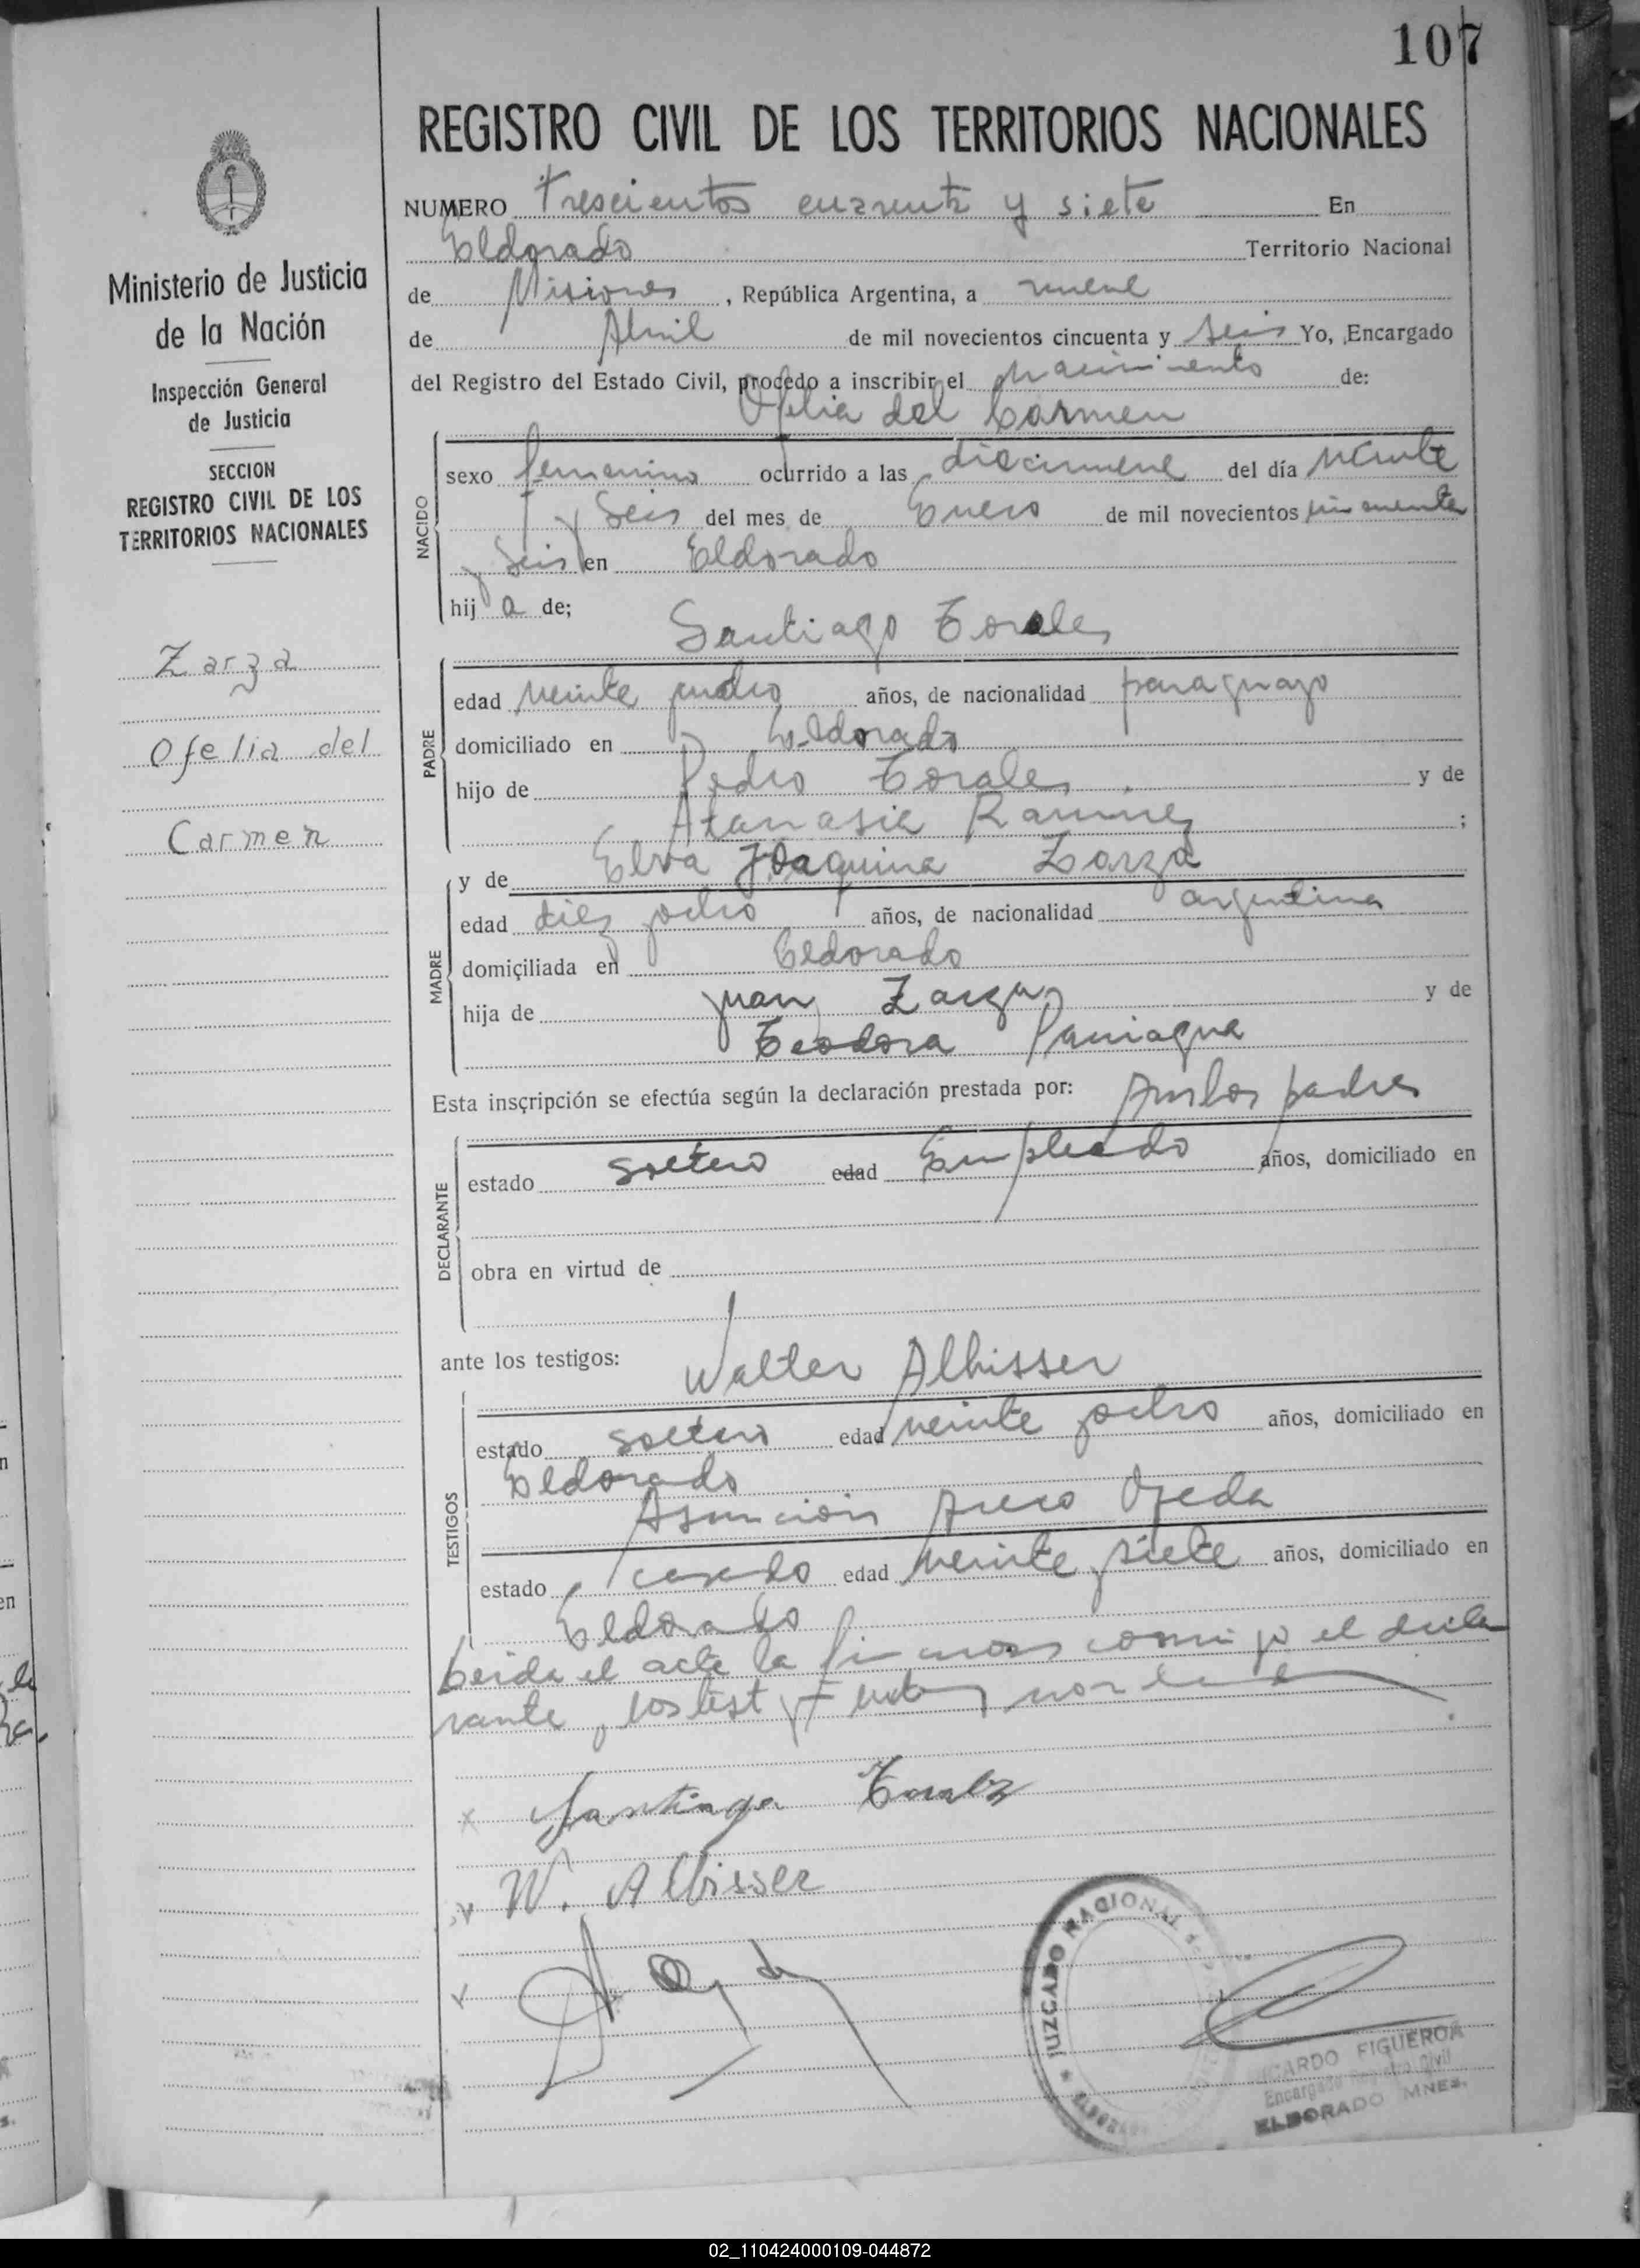 107
REGISTRO CIVIL DE LOS TERRITORIOS NACIONALES
Ministerio de Justicia
de la Nación
Inspección General
de Justicia
SECCION
REGISTRO CIVIL DE LOS
TERRITORIOS NACIONALES
Zarza
Ofelia del
Carmen
NUMERO Trescientos cuarenta y siete En
Eldorado Territorio Nacional
de Misiones, República Argentina, a nueve
de Abril de mil novecientos cincuenta y seis Yo, Encargado
del Registro del Estado Civil, procedo a inscribir el nacimiento de:
Ofelia del Carmen
NACIDO
sexo femenino ocurrido a las diecinueve del día veinte
y seis del mes de Enero de mil novecientos cincuenta
y seis en Eldorado
hija de;
Santiago Torales
PADRE
edad veinte y cuatro años, de nacionalidad paraguayo
domiciliado en Eldorado
hijo de Pedro Torales y de
Atanasia Ramirez ;
y de Elva Joaquina Zarza
MADRE
edad diez y ocho años, de nacionalidad argentina
domiciliada en Eldorado
hija de Juan Zarza y de
Teodora Paniagua
Esta inscripción se efectúa según la declaración prestada por: Ambos padres
DECLARANTE
estado soltero edad Empleado años, domiciliado en
obra en virtud de
ante los testigos: Walter Albisser
TESTIGOS
estado soltero edad veinte y ocho años, domiciliado en
Eldorado
Asunción Ojeda
estado casado edad veinte y siete años, domiciliado en
Eldorado
Leida el acta la firman conmigo el decla
rante y los test
x Santiago Torales
v W. Albisser
v
JUZGADO NACIONAL
RICARDO FIGUEROA
Encargado Registro Civil
ELDORADO MNES.
02_110424000109-044872